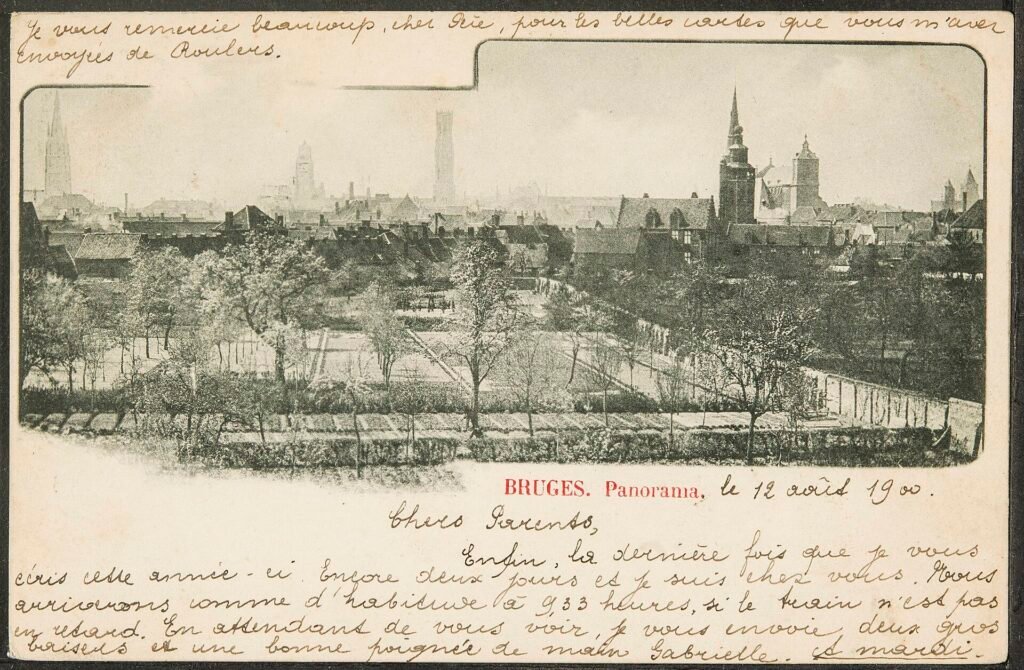 Je vous remercie beaucoup, cher Pie, pour les belles cartes que vous m'avez
envoyées de Roulers.
BRUGES. Panorama, le 12 août 1900.
Chers Parents,
Enfin, la dernière fois que je vous
écris cette année-ci. Encore deux jours et je suis chez vous. Nous
arriverons comme d'habitude à 9,33 heures, si le train n'est pas
en retard. En attendant de vous voir, je vous envoie, deux gros
baisers et une bonne poignée de main Gabrielle. à mardi.